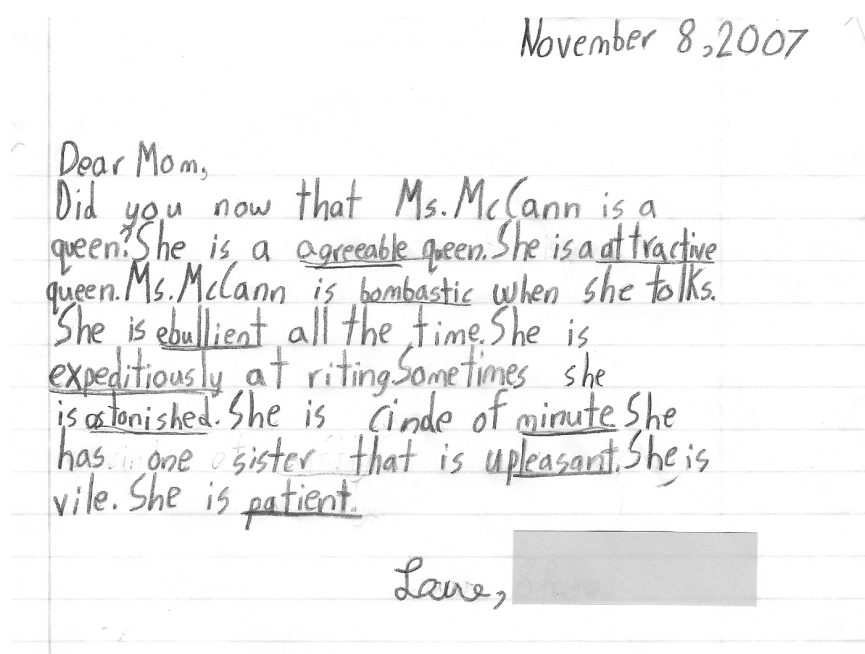 November 8, 2007
Dear Mom,
Did you now that Ms. McCann is a
queen? She is a agreeable queen. She is a attractive
queen. Ms. McCann is bombastic when she talks.
She is ebullient all the time. She is
expeditiously at riting. Sometimes she
is astonished. She is cinde of minute She
has one sister that is upleasant. She is
vile. She is patient.
Love,